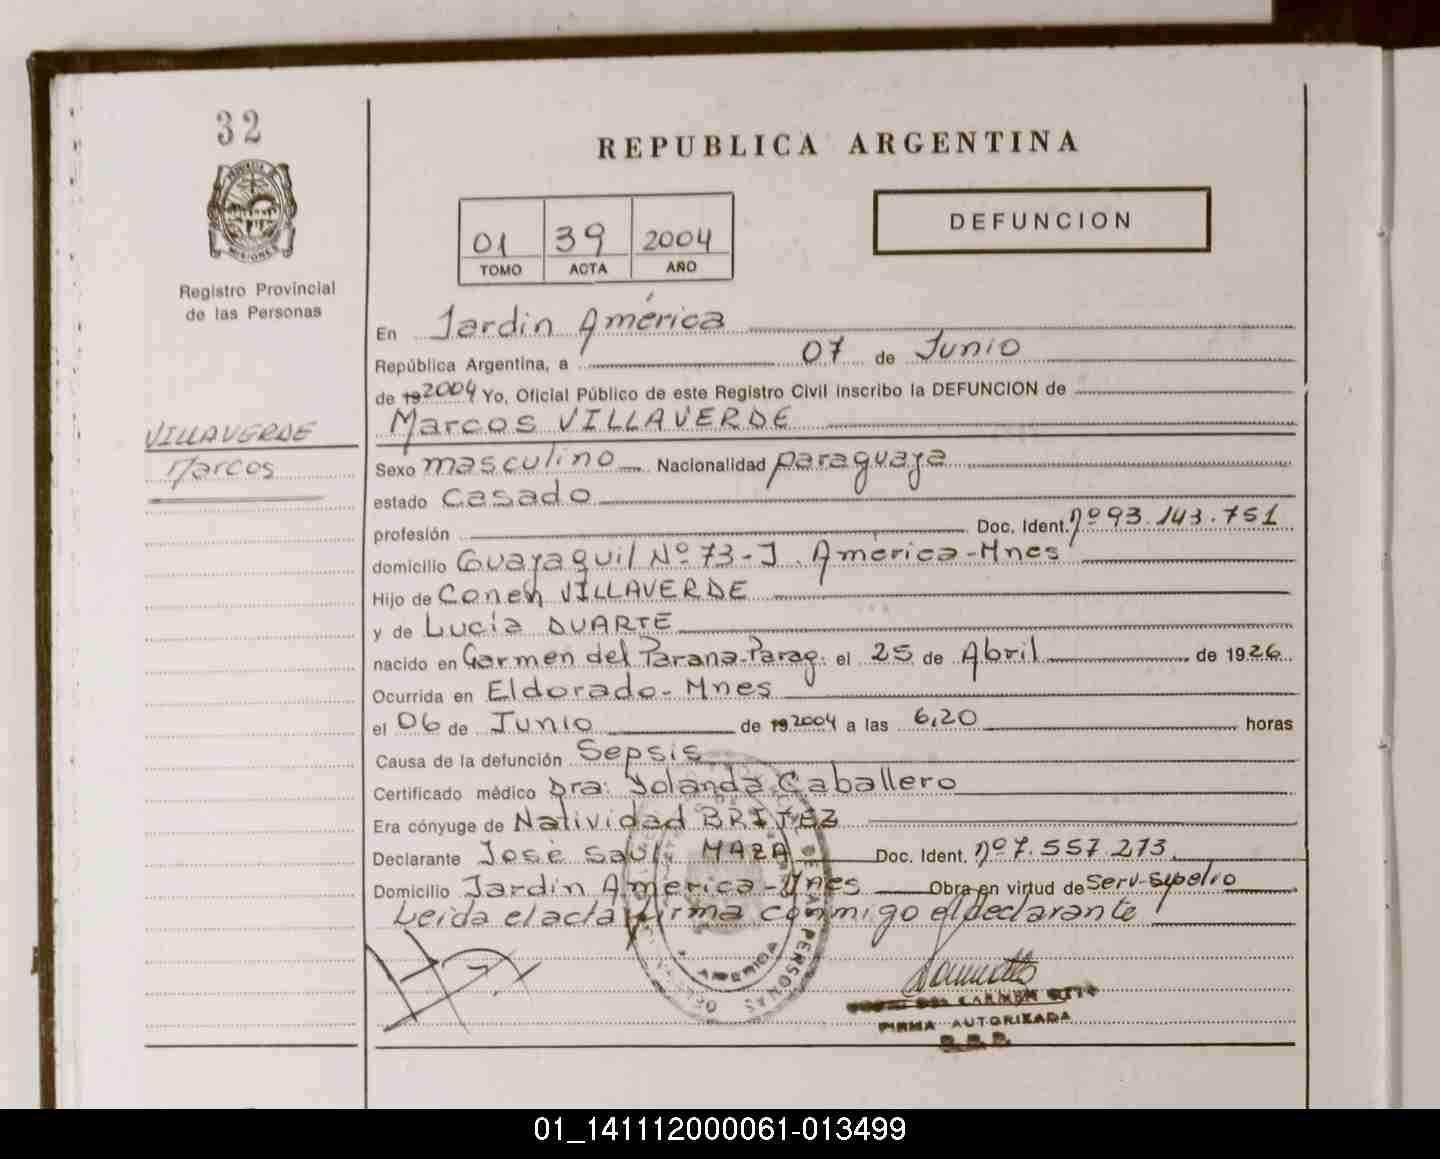 32
REPUBLICA ARGENTINA
DEFUNCION
01 39 2004
TOMO ACTA AÑO
MISIONES
Registro Provincial
de las Personas
En Jardin América
República Argentina, a 07 de Junio
de 19 2004 Yo, Oficial Público de este Registro Civil inscribo la DEFUNCION de
Marcos VILLAVERDE
VILLAVERDE
Marcos
Sexo masculino Nacionalidad paraguaya
estado Casado
profesión Doc. Ident. nº 93.143.751
domicilio Guayaquil Nº 73-J. América-Mnes
Hijo de VILLAVERDE
y de Lucía DUARTE
nacido en Carmen del Parana-Parag. el 25 de Abril de 1926
Ocurrida en Eldorado-Mnes
el 06 de Junio de 19 2004 a las 6,20 horas
Causa de la defunción Sepsis
Certificado médico Dra. Yolanda Caballero
Era cónyuge de Natividad BRITEZ
Declarante José Saul MAZA Doc. Ident. nº 7.557.273
Domicilio Jardín América-Mnes Obra en virtud de Serv-sepelio
Leida el acta firma conmigo el declarante
DE LAS PERSONAS
AMERICA
DEL CARMEN
FIRMA AUTORIZADA
01_141112000061-013499